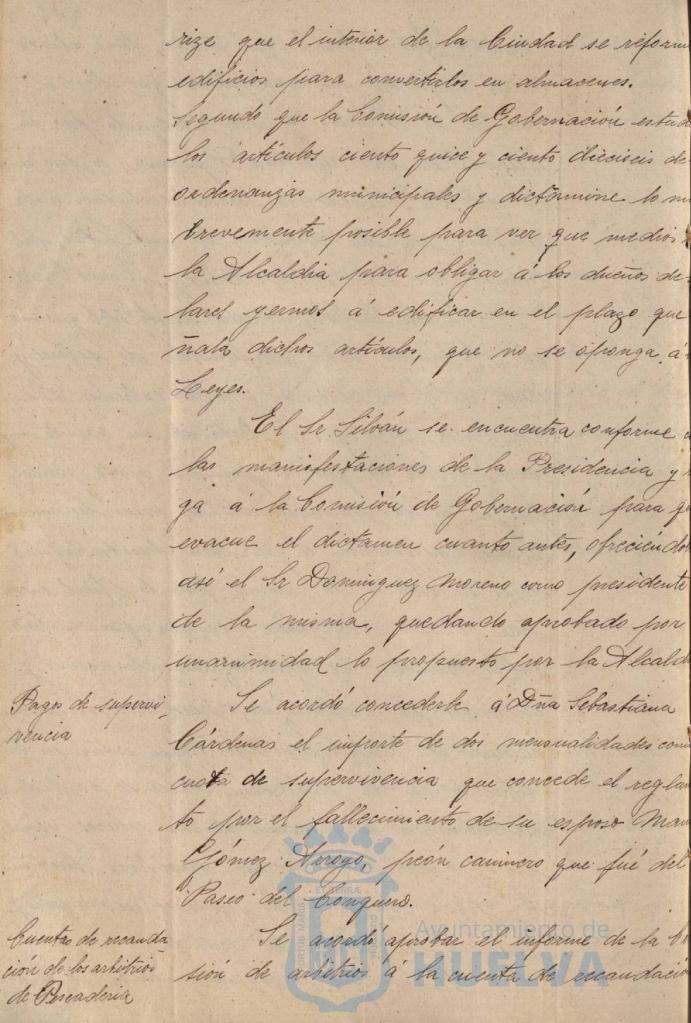 rize que el interior de la Ciudad se reform
edificios para convertirlos en almacenes.
Segundo que la Comisión de Gobernación estud
los artículos ciento quice y ciento dieciseis de
ordenanzas municipales y dictamine lo m
brevemente posible para ver que medios
la Alcaldia para obligar á los dueños de
lares yermos á edificar en el plazo que
ñala dichos artículos, que no se oponga á
Leyes.
El Sr Silván se encuentra conforme c
las manisfestaciones de la Presidencia y r
ga á la Comisión de Gobernación para q
evacue el dictamen cuanto antes, ofreciendo
asé el Sr Dominguez Moreno como presidente
de la misma, quedando aprobado por
unanimidad lo propuesto por la Alcald
Pagos de supervi-
vencia
Se acordó concederle á Dña Sebastiana
Cárdenas el importe de dos mensualidades com
cuota de supervivencia que concede el reglam
to por el fallecimiento de su esposo Man
Gómez Arroyo, peón caminero que fué del
Paseo del Conquero.
Cuentas de recauda
ción de los arbitrios
de Pescaderia
Se acordó aprobar el informe de la Co
sión de arbitrios á la cuenta de recaudació
Ayuntamiento de
HUELVA